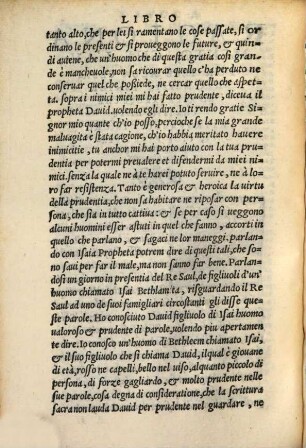 LIBRO
tanto alto, che per lei si ramentano le cose passate, si or
dinano le presenti & si proueggono le future, & quin-
di auiene, che un'huomo che di questa gratia cosi gran-
de è mancheuole, non sa ricourar quello c'ha perduto ne
conseruar quel che possiede, ne cercar quello che aspet-
ta. sopra i nimici miei mi hai fatto prudente, diceua il
propheta Dauid. uolendo egli dire. io ti rendo gratie Si-
gnor mio quante ch'io posso, percioche se la mia grande
maluagità è stata cagione, ch'io habbia meritato hauere
inimicitie, tu anchor mi hai porto aiuto con la tua pru-
dentia per potermi preualere et difendermi da miei ni-
mici. senza la quale ne à te harei potuto seruire, ne à lo-
ro far resistenza. Tanto è generosa & heroica la uirtu
della prudentia, che non sa habitare ne riposar con per-
sona, che sia in tutto cattiua: & se per caso si ueggono
alcuni huomini esser astuti in quel che fanno, accorti in
quello che parlano, & sagaci ne lor maneggi. parlan-
do con Isaia Propheta potrem dire di questi tali, che so-
no saui per far il male, ma non sanno far bene. Parlan-
dosi un giorno in presentia del Re Saul, de figliuoli d'un'
huomo chiamato Isai Bethlamita, risguardando il Re
Saul ad uno de suoi famigliari circostanti gli disse que
ste parole. Ho conosciuto Dauid figliuolo di Isai huomo
ualoroso & prudente di parole, uolendo piu apertamen
te dire. Io conosco un'huomo di Bethleem chiamato Isai,
& il suo figliuolo che si chiama Dauid, il qual è giouane
di età, rosso ne capelli, bello nel uiso, alquanto piccolo di
persona, di forze gagliardo, & molto prudente nelle
sue parole, cosa degna di consideratione, che la scrittura
sacra non lauda Dauid per prudente nel guardare, ne